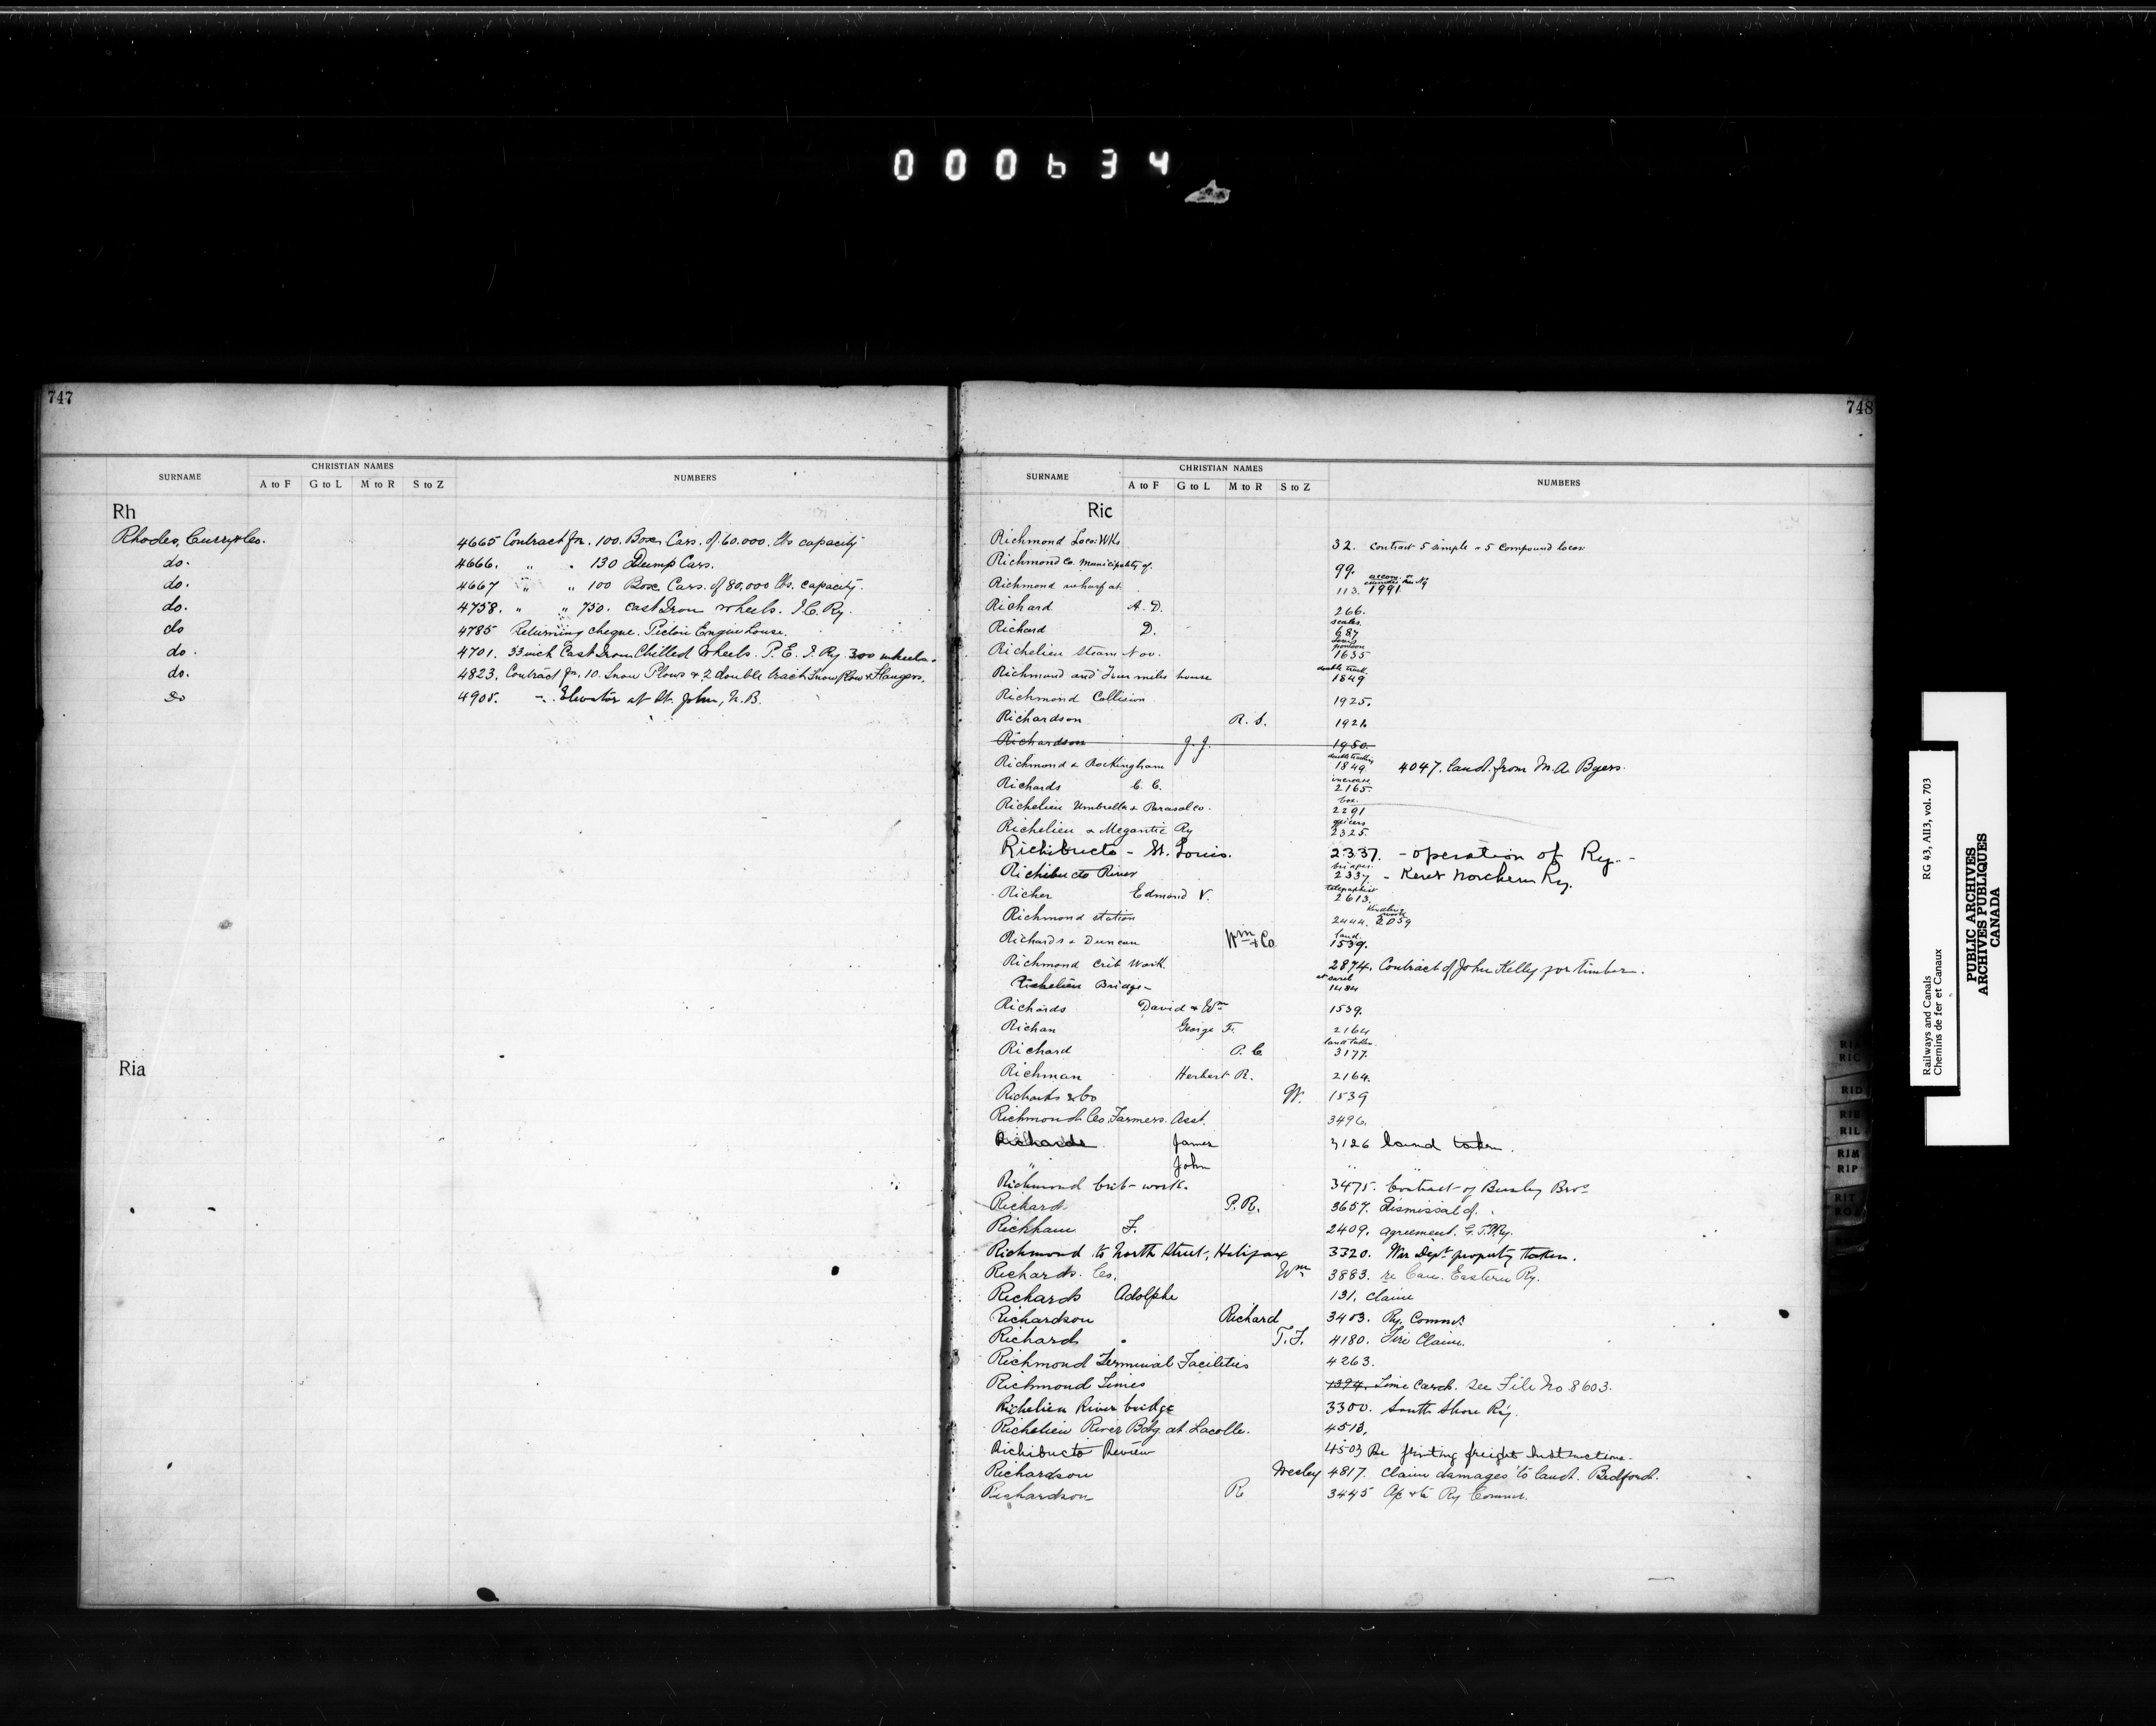 000634
747
SURNAME CHRISTIAN NAMES NUMBERS
A to F G to L M to R S to Z
Rh
Rhodes, Curry & Co. 4665 Contract for. 100. Box Cars. of 60.000. lbs capacity
do. 4666. " " 130 Dump Cars.
do. 4667 " " 100 Box Cars. of 80,000 lbs. capacity.
do. 4758. " " 750. Cast Iron Wheels. I.C. Ry.
do 4785 Returning cheque. Pictou Engine house.
do. 4701. 33 inch Cast Iron Chilled Wheels. P.E.I. Ry. 300 wheels.
do. 4823. Contract for. 10. Snow Plows & 2 double track Snow plow & Flangers.
do 4905. Elevator at St. John, N.B.
Ria
748
SURNAME CHRISTIAN NAMES NUMBERS
A to F G to L M to R S to Z
Ric
Richmond Loco. Wks 32. Contract 5 simple & 5 compound locos
Richmond Co. Municipality of. 99.
Richmond wharf at 113. 1991
Richard A. D. 266.
Richard D. scales. 687
Richelieu Steam Nav. pontoon 1635
Richmond and Four miles house double track 1849
Richmond Collision 1925.
Richardson R. S. 1921.
Richardson J. J. 1950.
Richmond & Rockingham double tracking 1849. 4047. land. from M. A. Byers.
Richards C. C. increase 2165.
Richelieu Umbrella & Parasol Co. 2291
Richelieu & Megantic Ry 2325.
Richibucto - St. Louis. 2337. - operation of Ry. -
Richibucto River bridges. 2337 - Kent Northern Ry.
Richer Edmond V. telegraphist 2613.
Richmond station 2444. kindling wood 2059
Richards & Duncan Wm & Co land. 1539.
Richmond Crib Work. 2874. Contract of John Kelly for timber.
Richelieu Bridge - at Sorel 1484
Richards David & Wm 1539.
Richan George F. 2164
Richard P. C. land taken. 3177.
Richman Herbert R. 2164.
Richards & Co W. 1539
Richmond Co. Farmers. Asst. 3496.
Richards James 3126 land taken.
" John " "
Richmond Crib-work. 3475. Contract of Busby Bros
Richard P. R. 3657. Dismissal of.
Rickham F. 2409. agreement. G.T.P.Ry.
Richmond to North Street, Halifax 3320. War Dept property taken.
Richards. Co. Wm 3883. re Can. Eastern Ry.
Richards Adolphe 131. claim
Richardson Richard 3403. Ry. Commr.
Richard T. F. 4180. Fire Claim.
Richmond Terminal Facilities 4263.
Richmond Times 1394. Time Card. See File No. 8603.
Richelieu River bridge 3300. South Shore Ry.
Richelieu River Bdg. at Lacolle. 4518.
Richibucto Review 4503 Re printing freight Instructions.
Richardson Wesley 4817. Claim damages to land. Bedford.
Richardson R 3445 Ry Commr.
RIA
RIC
RID
RIE
RIL
RIM
RIP
RIT
Railways and Canals RG 43, AII3, vol. 703
Chemins de fer et Canaux
PUBLIC ARCHIVES
ARCHIVES PUBLIQUES
CANADA